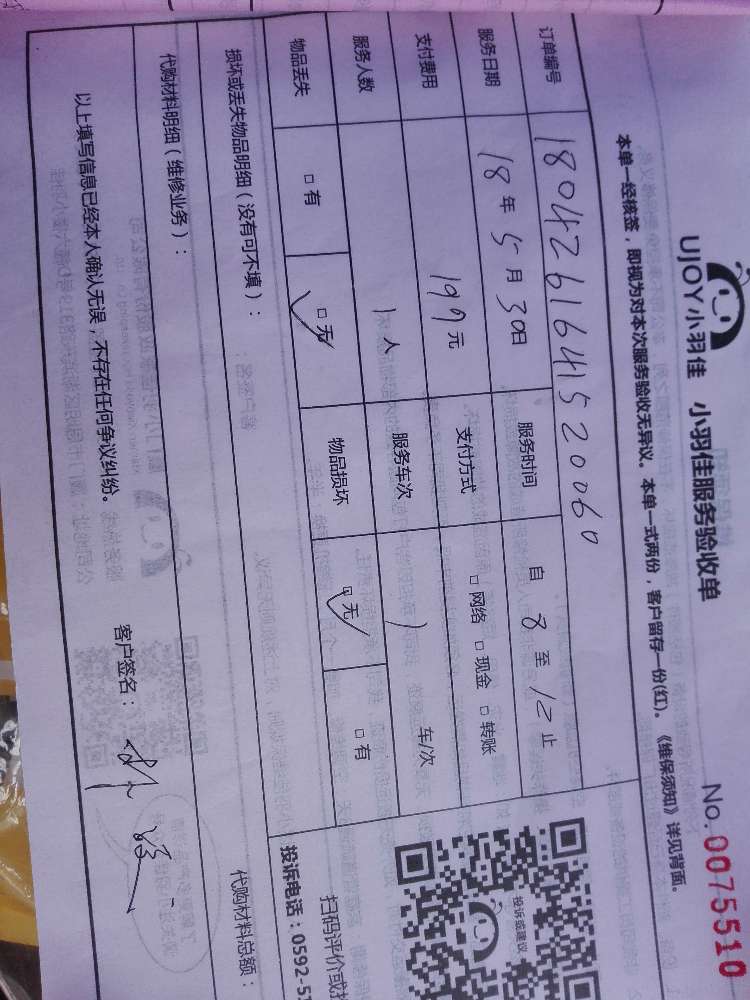 UJOY小羽佳 小羽佳服务验收单
No.0075510
本单一经核签，即视为对本次服务验收无异议。本单一式两份，客户留存一份(红)。《维保须知》详见背面。
订单编号 1804261641520060
服务日期 18年5月30日 服务时间 自8至12止
支付费用 199元 支付方式 □网络 □现金 □转账
服务人数 1人 服务车次 1车/次
物品丢失 □有 □无 物品损坏 □无 □有
投诉或建议
扫码评价或
投诉电话：0592-5
损坏或丢失物品明细（没有可不填）：
代购材料明细（维修业务）： 代购材料总额：
以上填写信息已经本人确认无误，不存在任何争议纠纷。 客户签名：